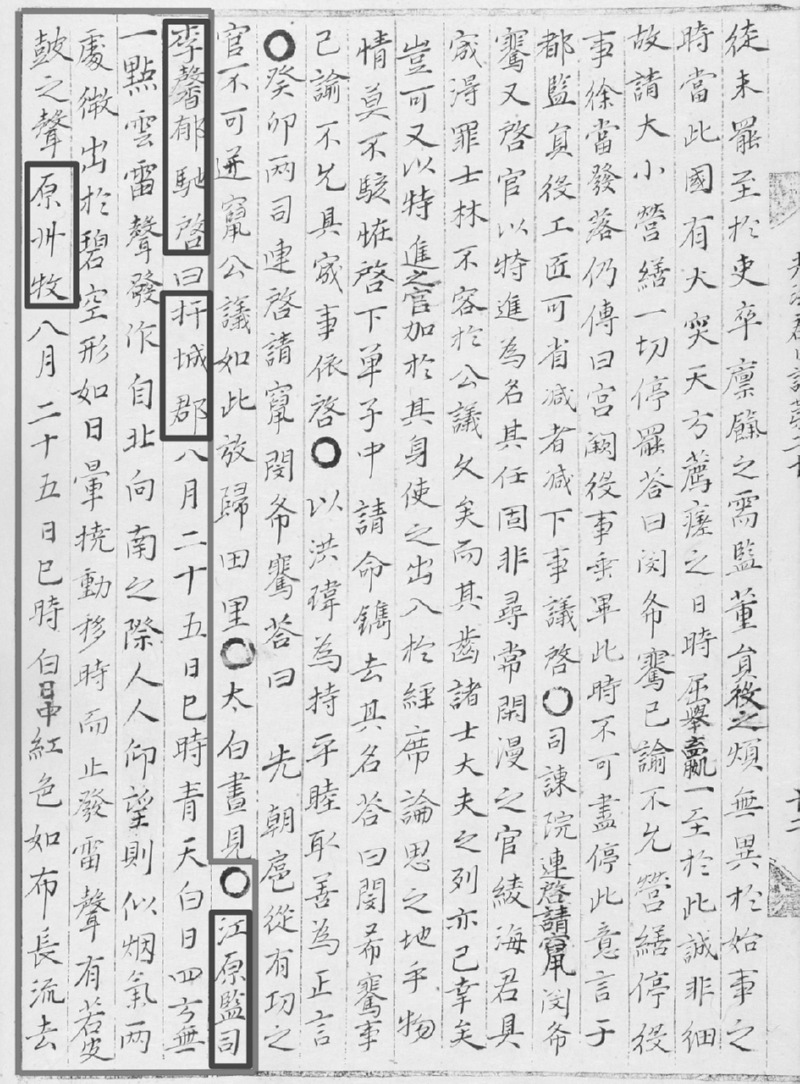 徒未罷至於吏卒廩餼之需監董負役之煩無異於始事之
時當此國有大災天方薦瘥之日時屈擧嬴一至於此誠非細
故請大小營繕一切停罷答曰閔希騫已諭不允營繕停役
事徐當發落仍傳曰宮闕役事垂畢此時不可盡停此意言于
都監員役工匠可省減者減下事議啓○司諫院連啓請竄閔希
騫又啓官以特進為名其任固非尋常閑漫之官綾海君具
宬得罪士林不容於公議久矣而其齒諸士大夫之列亦已幸矣
豈可又以特進之官加於其身使之出入於經席論思之地乎物
情莫不駭怪啓下單子中請命鐫去其名答曰閔希騫事
已諭不允具宬事依啓○以洪瑋為持平睦取善為正言
○癸卯兩司連啓請竄閔希騫答曰 先朝扈從有功之
官不可迸竄公議如此放歸田里○太白晝見○江原監司
李馨郁馳啓曰扞城郡八月二十五日巳時青天白日四方無
一點雲雷聲發作自北向南之際人人仰望則似烟氣兩
處微出於碧空形如日暈撓動移時而止發雷聲有若皮
鼓之聲原州牧八月二十五日巳時白日中紅色如布長流去